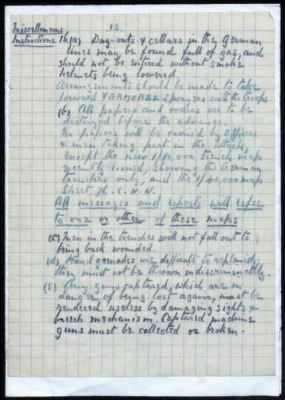 Miscellaneous 13.
Instructions (a) Dug-outs & cellars in the German
lines may be found full of gas, and
should not be entered without smoke
helmets being lowered
Arrangements should be made to take
forward VERMORAL sprayers with the troops
(b) All papers and orders are to be
destroyed before the advance.
No papers will be carried by officers
& men taking part in the attack,
except the new 1/10,000 trench maps
recently issued, showing the German
trenches only and the 1/10,000 maps
Sheet 36.C. N.W.
All messages and reports will refer
to one or other of these maps
(c) Men in the trenches will not fall out to
bring back wounded.
(d) Hand grenades are difficult to replenish,
they must not be thrown indiscriminately.
(e) Any guns captured, which are in
danger of being lost again, must be
rendered useless by damaging sights &
breech mechanism. Captured machine
guns must be collected or broken.